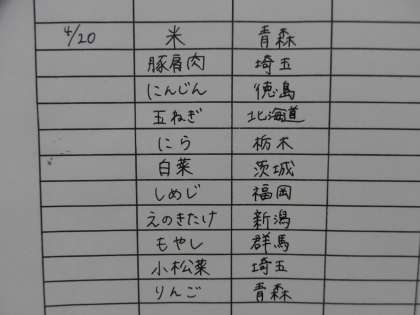 4/20 米 青森
豚肩肉 埼玉
にんじん 徳島
玉ねぎ 北海道
にら 栃木
白菜 茨城
しめじ 福岡
えのきたけ 新潟
もやし 群馬
小松菜 埼玉
りんご 青森